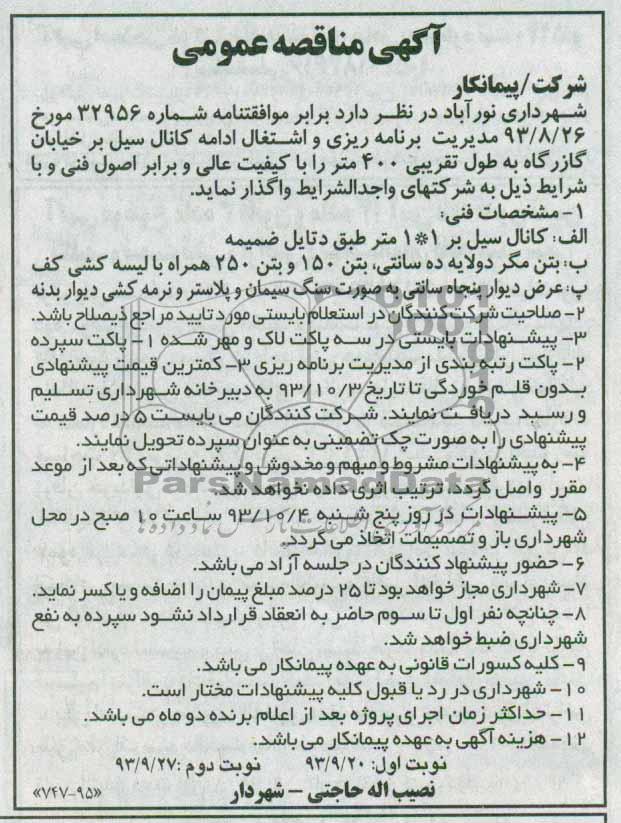 آگهی مناقصه عمومی
شرکت/پیمانکار
شهرداری نورآباد در نظر دارد برابر موافقتنامه شماره ۳۲۹۵۶ مورخ
۹۳/۸/۲۶ مدیریت برنامه ریزی و اشتغال ادامه کانال سیل بر خیابان
گازرگاه به طول تقریبی ۴۰۰ متر را با کیفیت عالی و برابر اصول فنی و با
شرایط ذیل به شرکتهای واجدالشرایط واگذار نماید.
۱- مشخصات فنی:
الف: کانال سیل بر ۱*۱ متر طبق دتایل ضمیمه
ب: بتن مگر دولایه ده سانتی، بتن ۱۵۰ و بتن ۲۵۰ همراه با لیسه کشی کف
پ: عرض دیوار پنجاه سانتی به صورت سنگ سیمان و پلاستر و نرمه کشی دیوار بدنه
۲- صلاحیت شرکت کنندگان در استعلام بایستی مورد تایید مراجع ذیصلاح باشد.
۳- پیشنهادات بایستی در سه پاکت لاک و مهر شده ۱- پاکت سپرده
۲- پاکت رتبه بندی از مدیریت برنامه ریزی ۳- کمترین قیمت پیشنهادی
بدون قلم خوردگی تا تاریخ ۹۳/۱۰/۳ به دبیرخانه شهرداری تسلیم
و رسید دریافت نمایند. شرکت کنندگان می بایست ۵ درصد قیمت
پیشنهادی را به صورت چک تضمینی به عنوان سپرده تحویل نمایند.
۴- به پیشنهادات مشروط و مبهم و مخدوش و پیشنهاداتی که بعد از موعد
مقرر واصل گردد، ترتیب اثری داده نخواهد شد.
ParsNamadData
۵- پیشنهادات در روز پنج شنبه ۹۳/۱۰/۴ ساعت ۱۰ صبح در محل
شهرداری باز و تصمیمات اتخاذ می گردد.
۶- حضور پیشنهاد کنندگان در جلسه آزاد می باشد.
۷- شهرداری مجاز خواهد بود تا ۲۵ درصد مبلغ پیمان را اضافه و یا کسر نماید.
۸- چنانچه نفر اول تا سوم حاضر به انعقاد قرارداد نشود سپرده به نفع
شهرداری ضبط خواهد شد.
۹- کلیه کسورات قانونی به عهده پیمانکار می باشد.
۱۰- شهرداری در رد یا قبول کلیه پیشنهادات مختار است.
۱۱- حداکثر زمان اجرای پروژه بعد از اعلام برنده دو ماه می باشد.
۱۲- هزینه آگهی به عهده پیمانکار می باشد.
نوبت اول: ۹۳/۹/۲۰ نوبت دوم: ۹۳/۹/۲۷
نصیب اله حاجتی – شهردار
«۷۴۷-۹۵»